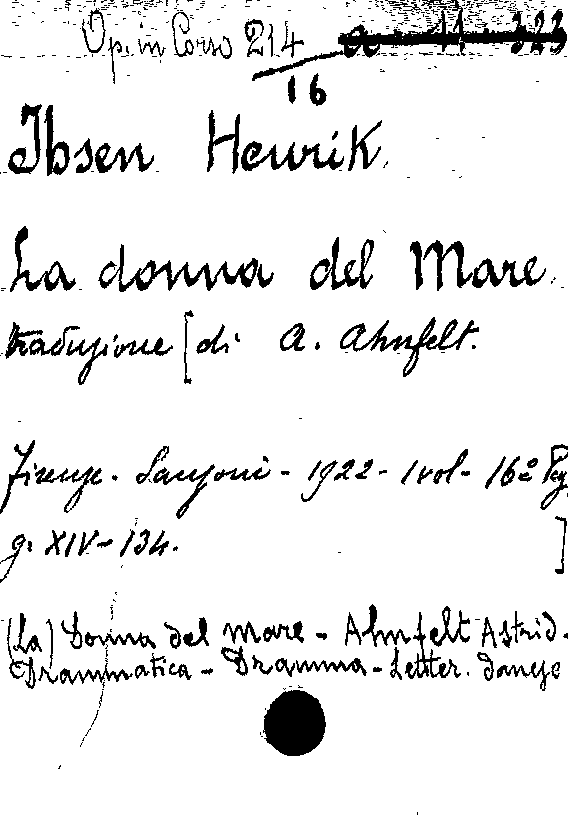 Op. in Corso 214 a - 11 - 323
16
Ibsen Henrik.
La donna del Mare.
traduzione [di A. Ahnfelt.
Firenze. Sansoni - 1922 - 1 vol - 16º Pag.
g. XIV - 134. ]
(La) Donna del mare - Ahnfelt Astrid -
Drammatica - Dramma - Letter. danese